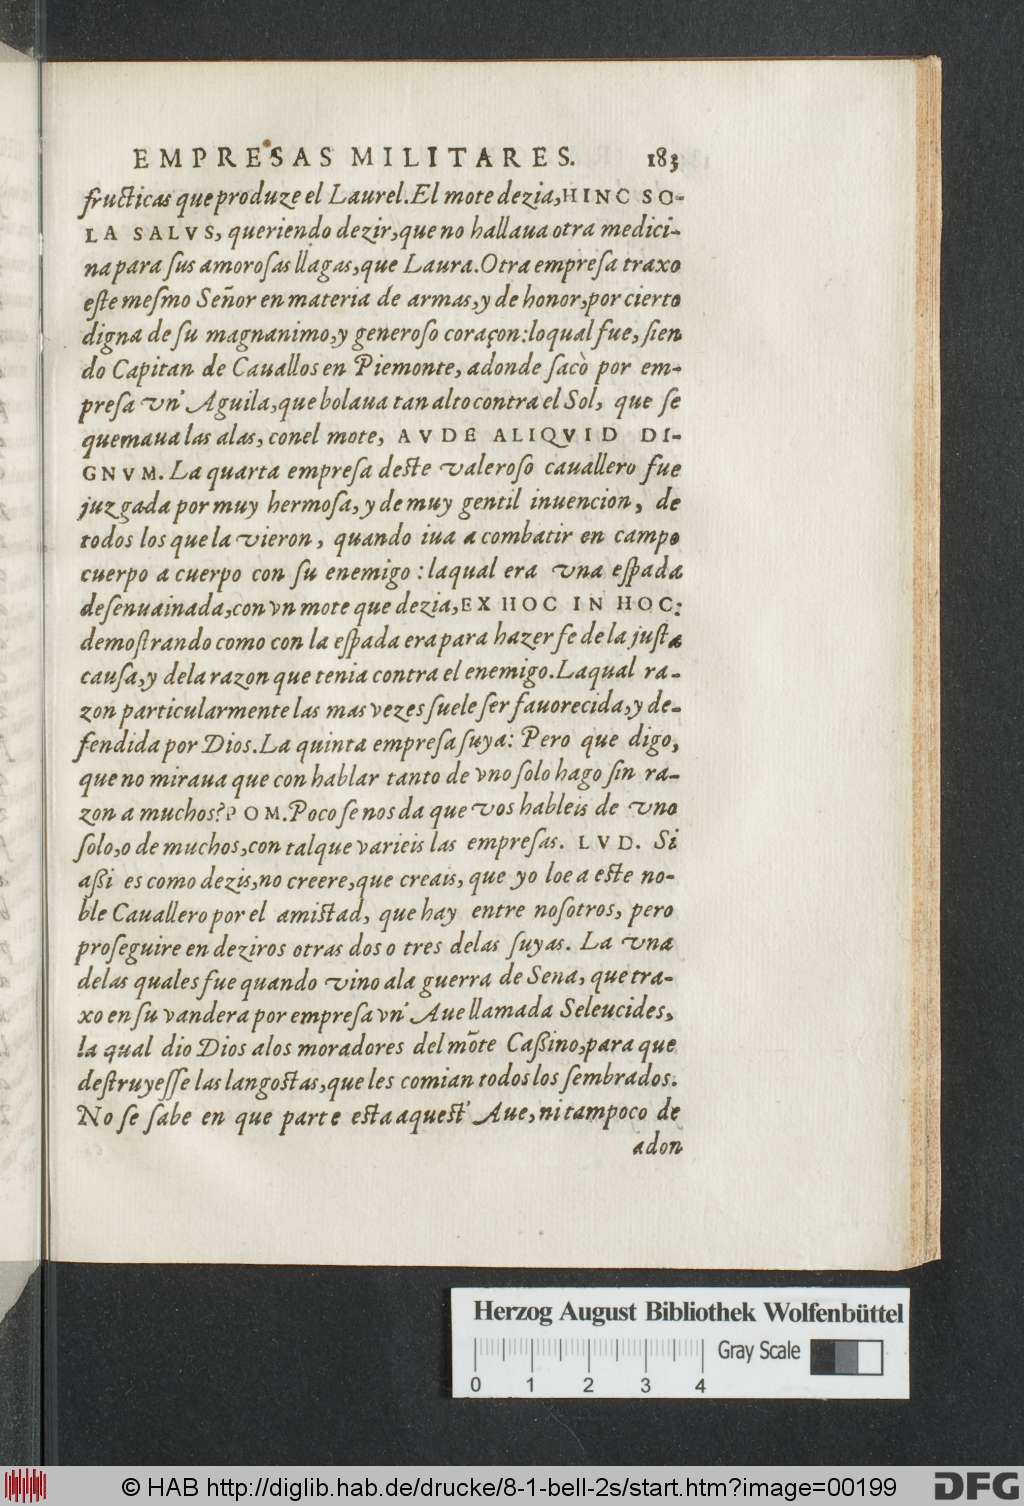 EMPRESAS MILITARES. 183
fructicas que produze el Laurel. El mote dezia, HINC SO-
LA SALVS, queriendo dezir, que no hallaua otra medici-
na para sus amorosas llagas, que Laura. Otra empresa traxo
este mesmo Señor en materia de armas, y de honor, por cierto
digna de su magnanimo, y generoso coraçon: loqual fue, sien
do Capitan de Cauallos en Piemonte, adonde sacò por em-
presa vn' Aguila, que bolaua tan alto contra el Sol, que se
quemaua las alas, conel mote, AVDE ALIQVID DI-
GNVM. La quarta empresa deste valeroso cauallero fue
juzgada por muy hermosa, y de muy gentil inuencion, de
todos los que la vieron, quando iua a combatir en campo
cuerpo a cuerpo con su enemigo: laqual era vna espada
desenuainada, con vn mote que dezia, EX HOC IN HOC:
demostrando como con la espada era para hazer fe de la justa
causa, y dela razon que tenia contra el enemigo. Laqual ra-
zon particularmente las mas vezes suele ser fauorecida, y de-
fendida por Dios. La quinta empresa suya: Pero que digo,
que no miraua que con hablar tanto de vno solo hago sin ra-
zon a muchos? POM. Poco se nos da que vos hableis de vno
solo, o de muchos, con talque varieis las empresas. LVD. Si
aßi es como dezis, no creere, que creais, que yo loe a este no-
ble Cauallero por el amistad, que hay entre nosotros, pero
proseguire en deziros otras dos o tres delas suyas. La vna
delas quales fue quando vino ala guerra de Sena, que tra-
xo en su vandera por empresa vn' Aue llamada Seleucides,
la qual dio Dios alos moradores del mõte Caßino, para que
destruyesse las langostas, que les comian todos los sembrados.
No se sabe en que parte esta aquest' Aue, ni tampoco de
adon
Herzog August Bibliothek Wolfenbüttel
Gray Scale
0 1 2 3 4
© HAB http://diglib.hab.de/drucke/8-1-bell-2s/start.htm?image=00199
DFG